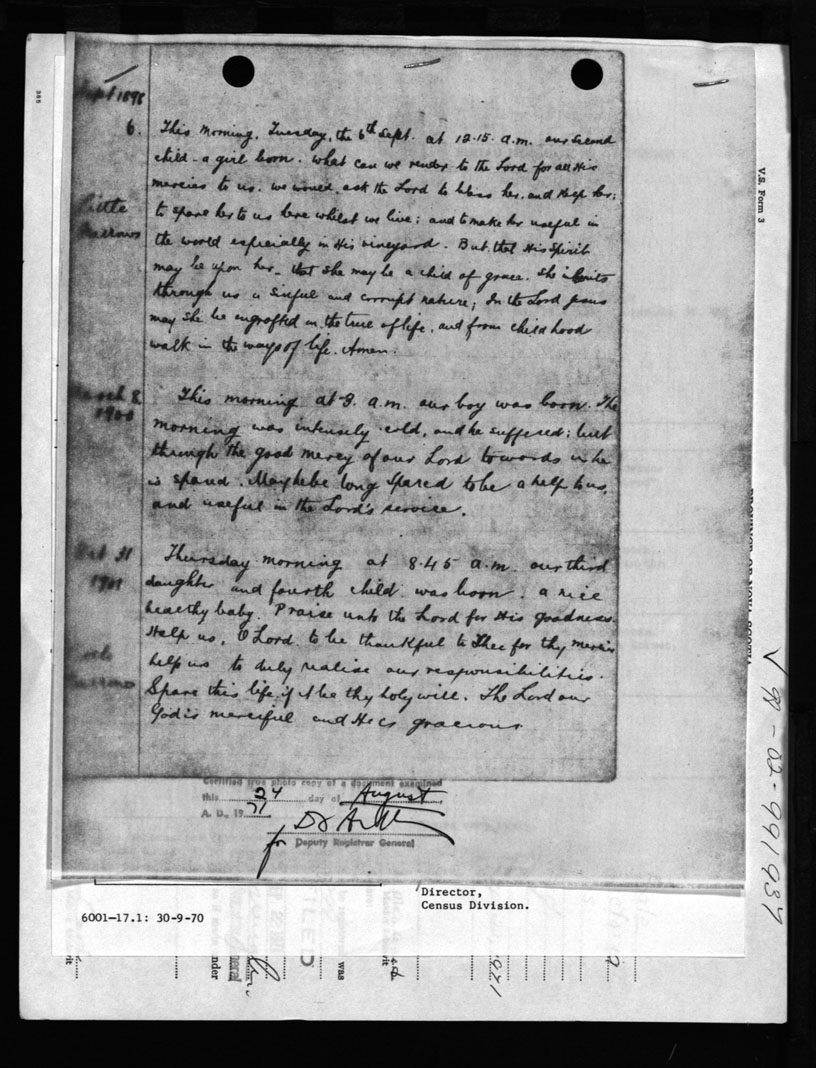 Sept 1898
6. This morning, Tuesday, the 6th Sept. at 12.15. a.m. our second
child - a girl born. What can we render to the Lord for all His
mercies to us. We would ask the Lord to bless her, and keep her;
Little
to spare her to us here whilst we live; and to make her useful in
the world especially in His vineyard. But that His Spirit
may be upon her - that she may be a child of grace. She
through us a sinful and corrupt nature; In the Lord Jesus
may she be engrafted in the tree of life, and from childhood
walk in the ways of life. Amen.
March 8
1900
This morning at 8. a.m. our boy was born. The
morning was intensely cold, and he suffered; but
through the good mercy of our Lord towards us he
is spared. May he be long spared to be a help to us,
and useful in the Lord's service.
Oct 31
1901
Thursday morning at 8.45 a.m. our third
daughter and fourth child was born. a nice
healthy baby. Praise unto the Lord for His goodness.
Help us, O Lord to be thankful to Thee for thy mercies
help us to duly realise our responsibilities.
Spare this life, if it be thy holy will. The Lord our
God is merciful and He is gracious
Certified true photo copy of a document examined
this 24 day of August
A. D., 19 71
for Deputy Registrar General
Director,
Census Division.
6001-17.1: 30-9-70
V.S. Form 3